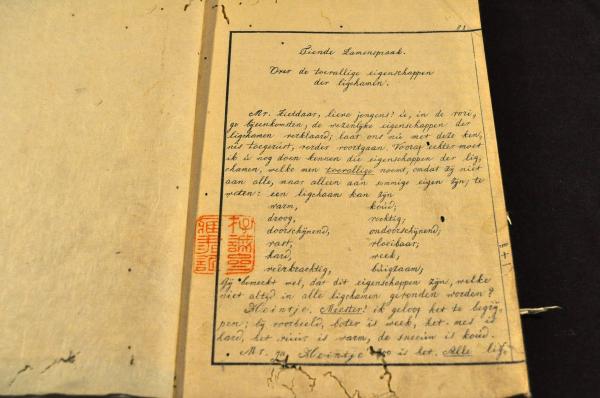 Tiende Zamenspraak.
Over de toevallige eigenschappen
der ligchamen.
Mr. Ziedaar, lieve jongens! ú, in de vori,
ge bijeenkomsten, de wezenlijke eigenschappen der
ligchamen verklaard; laat ons nú met deze ken,
nis toegerust, verder voortgaan. Vooraf echter moet
ik ú nog doen kennen die eigenschappen der lig,
chamen, welke men toevallige noemt, omdat zij niet
aan alle, maar alleen aan sommige eigen zijn; te
weten: een ligchaam kan zijn
warm, koúd;
droog, vochtig;
doorschijnend, ondoorschijnend;
vast, vloeibaar;
hard, week;
veêrkrachtig, búigzaam;
Gij bemerkt wel, dat dit eigenschappen zijn, welke
niet altijd in alle ligchamen gevonden worden?
Heintje. Meester! ik geloof het te begrij,
pen; bij voorbeeld, boter is week, het mes is
hard, het vúúr is warm, de sneeuw is koúd.
Mr. Ja Heintje zoo is het. Alle lig,